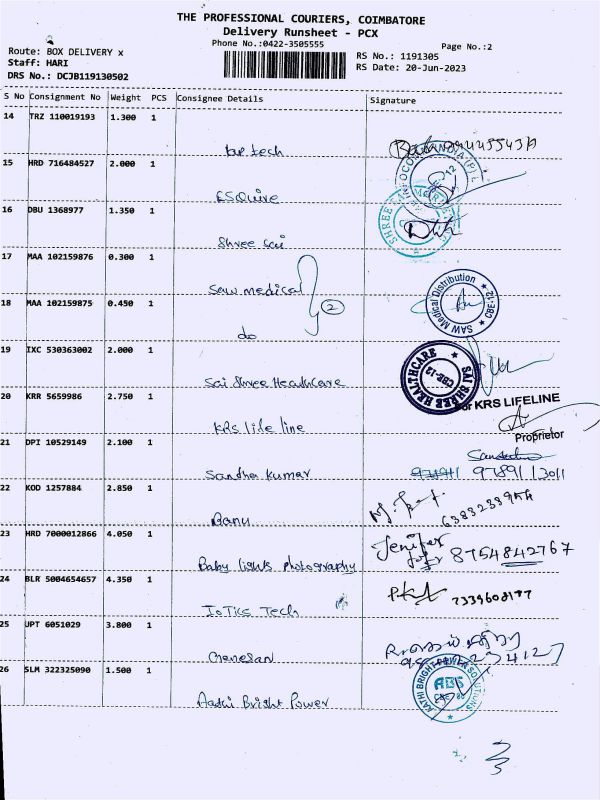 THE PROFESSIONAL COURIERS, COIMBATORE
Delivery Runsheet - PCX
Phone No.:0422-3505555
Page No.:2
Route: BOX DELIVERY x
Staff: HARI
DRS No.: DCJB119130502
RS No.: 1191305
RS Date: 20-Jun-2023
S No Consignment No Weight PCS Consignee Details Signature
14 TRZ 110019193 1.300 1
tech
15 HRD 716484527 2.000 1
ESQuire
16 DBU 1368977 1.350 1
Shree Sai
17 MAA 102159876 0.300 1
Saw medical
SAW Medical Distribution * CBE-12 *
18 MAA 102159875 0.450 1
2
do
19 IXC 530363002 2.000 1
Sai Shree Healthcare
SAI SHREE HEALTHCARE CBE-12
20 KRR 5659986 2.750 1
For KRS LIFELINE
KRS life line
Proprietor
21 DPI 10529149 2.100 1
Sandha Kumar
9789113011
22 KOD 1257884 2.850 1
Banu
23 HRD 7000012866 4.050 1
Jenifer
Baby lights photography
8754842767
24 BLR 5004654657 4.350 1
IoTics Tech
25 UPT 6051029 3.800 1
Ganesan
26 SLM 322325090 1.500 1
Aathi Bright Power
AATHI BRIGHT POWER SOLUTIONS
ABS